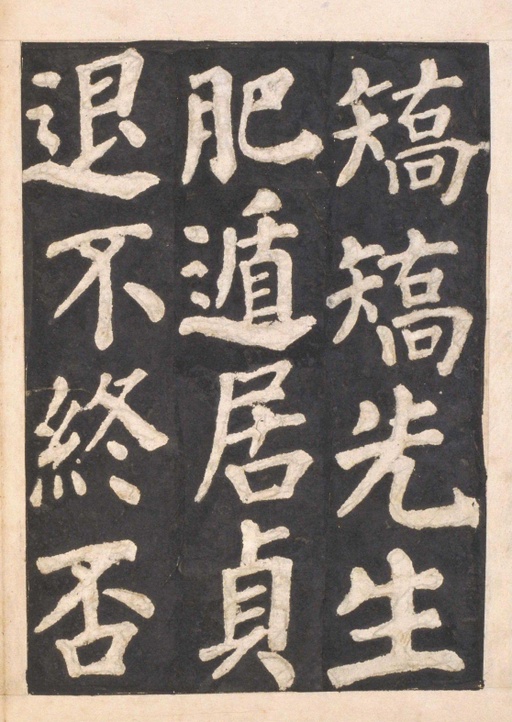 矯矯先生
肥遁居貞
退不終否